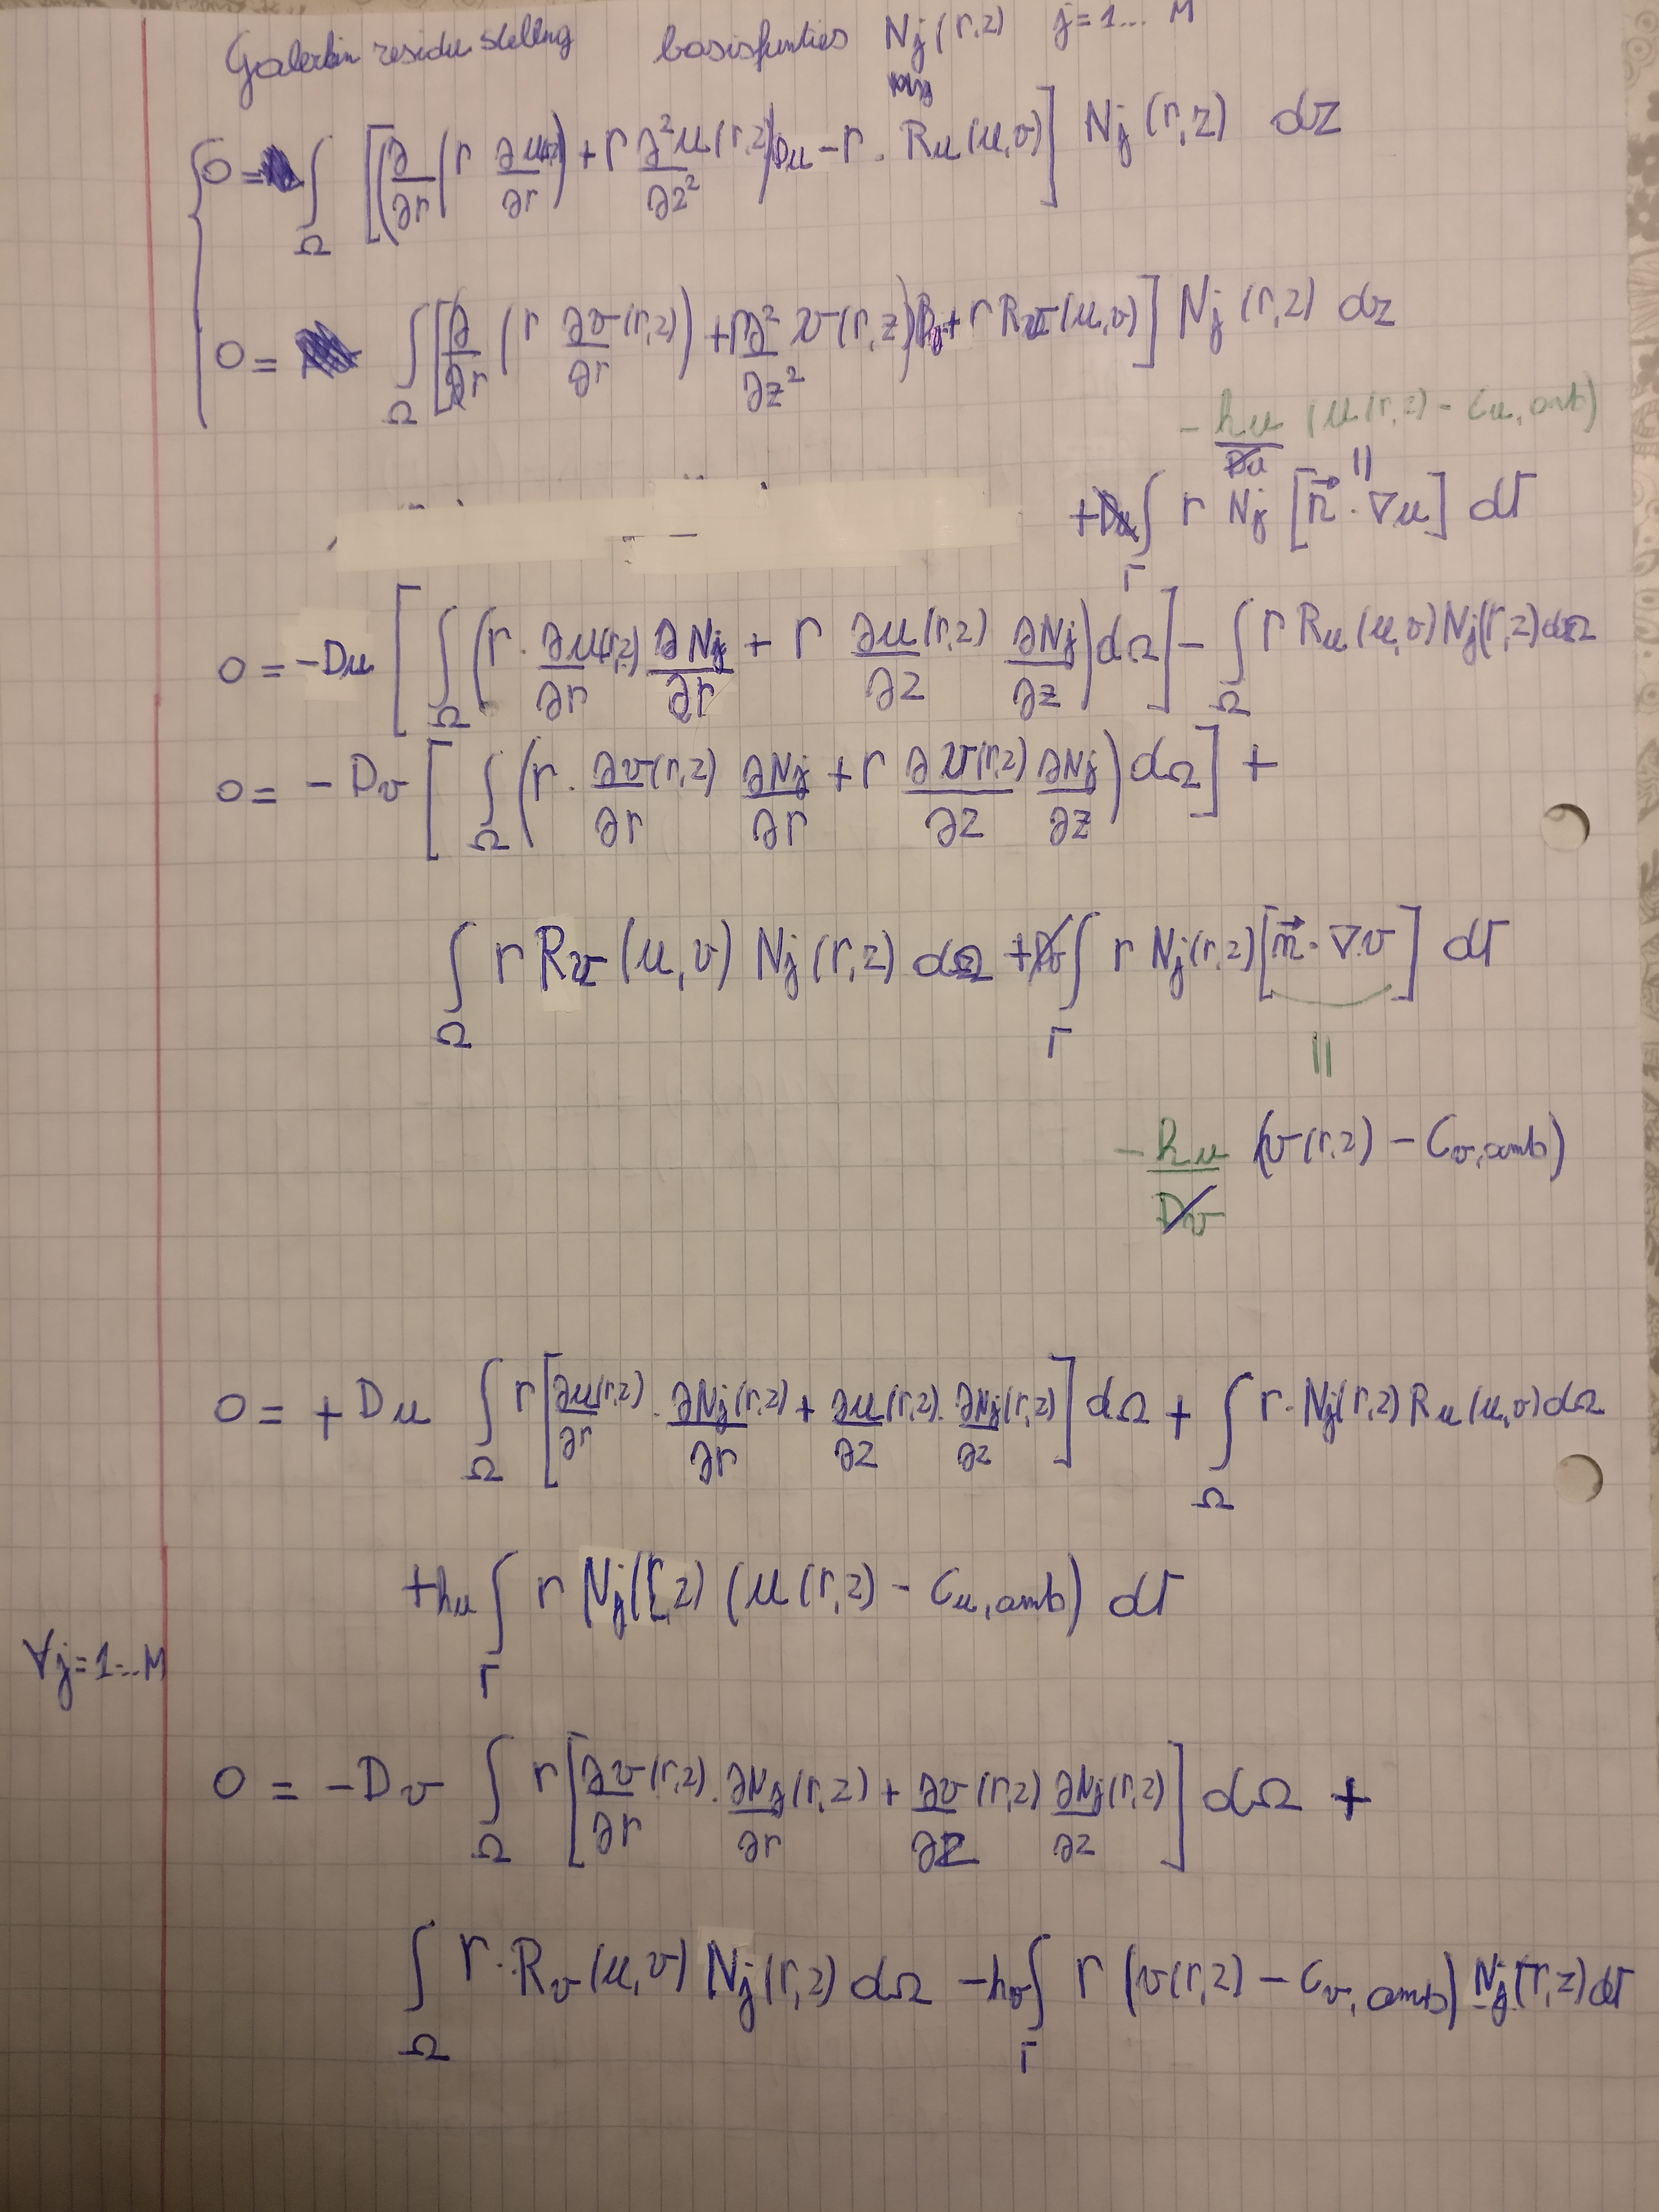 Galerkin residu stelling basisfunties Nj(r,z) j=1... M
0 = ∫Ω [(∂/∂r (r ∂u/∂r) + r ∂²u(r,z)/∂z²) Du - r . Ru(u,v)] Nj(r,z) dz
0 = ∫Ω [(∂/∂r (r ∂v(r,z)/∂r) + r ∂²/∂z² v(r,z)) Dv + r Rv(u,v)] Nj(r,z) dz
- hu/Du (u(r,z) - Cu,amb)
||
+ Du ∫Γ r Nj [n⃗ . ∇u] dΓ
0 = -Du [∫Ω (r . ∂u(r,z)/∂r ∂Nj/∂r + r ∂u(r,z)/∂z ∂Nj/∂z) dΩ] - ∫Ω r Ru(u,v) Nj(r,z) dΩ
0 = - Dv [∫Ω (r . ∂v(r,z)/∂r ∂Nj/∂r + r ∂v(r,z)/∂z ∂Nj/∂z) dΩ] +
∫Ω r Rv(u,v) Nj(r,z) dΩ + Dv ∫Γ r Nj(r,z) [n⃗ . ∇v] dΓ
||
- hu/Dv (v(r,z) - Cv,amb)
0 = + Du ∫Ω r [∂u(r,z)/∂r . ∂Nj(r,z)/∂r + ∂u(r,z)/∂z . ∂Nj(r,z)/∂z] dΩ + ∫Ω r . Nj(r,z) Ru(u,v) dΩ
+ hu ∫Γ r Nj(r,z) (u(r,z) - Cu,amb) dΓ
∀j=1...M
0 = -Dv ∫Ω r [∂v(r,z)/∂r . ∂Nj(r,z)/∂r + ∂v(r,z)/∂z ∂Nj(r,z)/∂z] dΩ +
∫Ω r . Rv(u,v) Nj(r,z) dΩ - hv ∫Γ r (v(r,z) - Cv,amb) Nj(r,z) dΓ